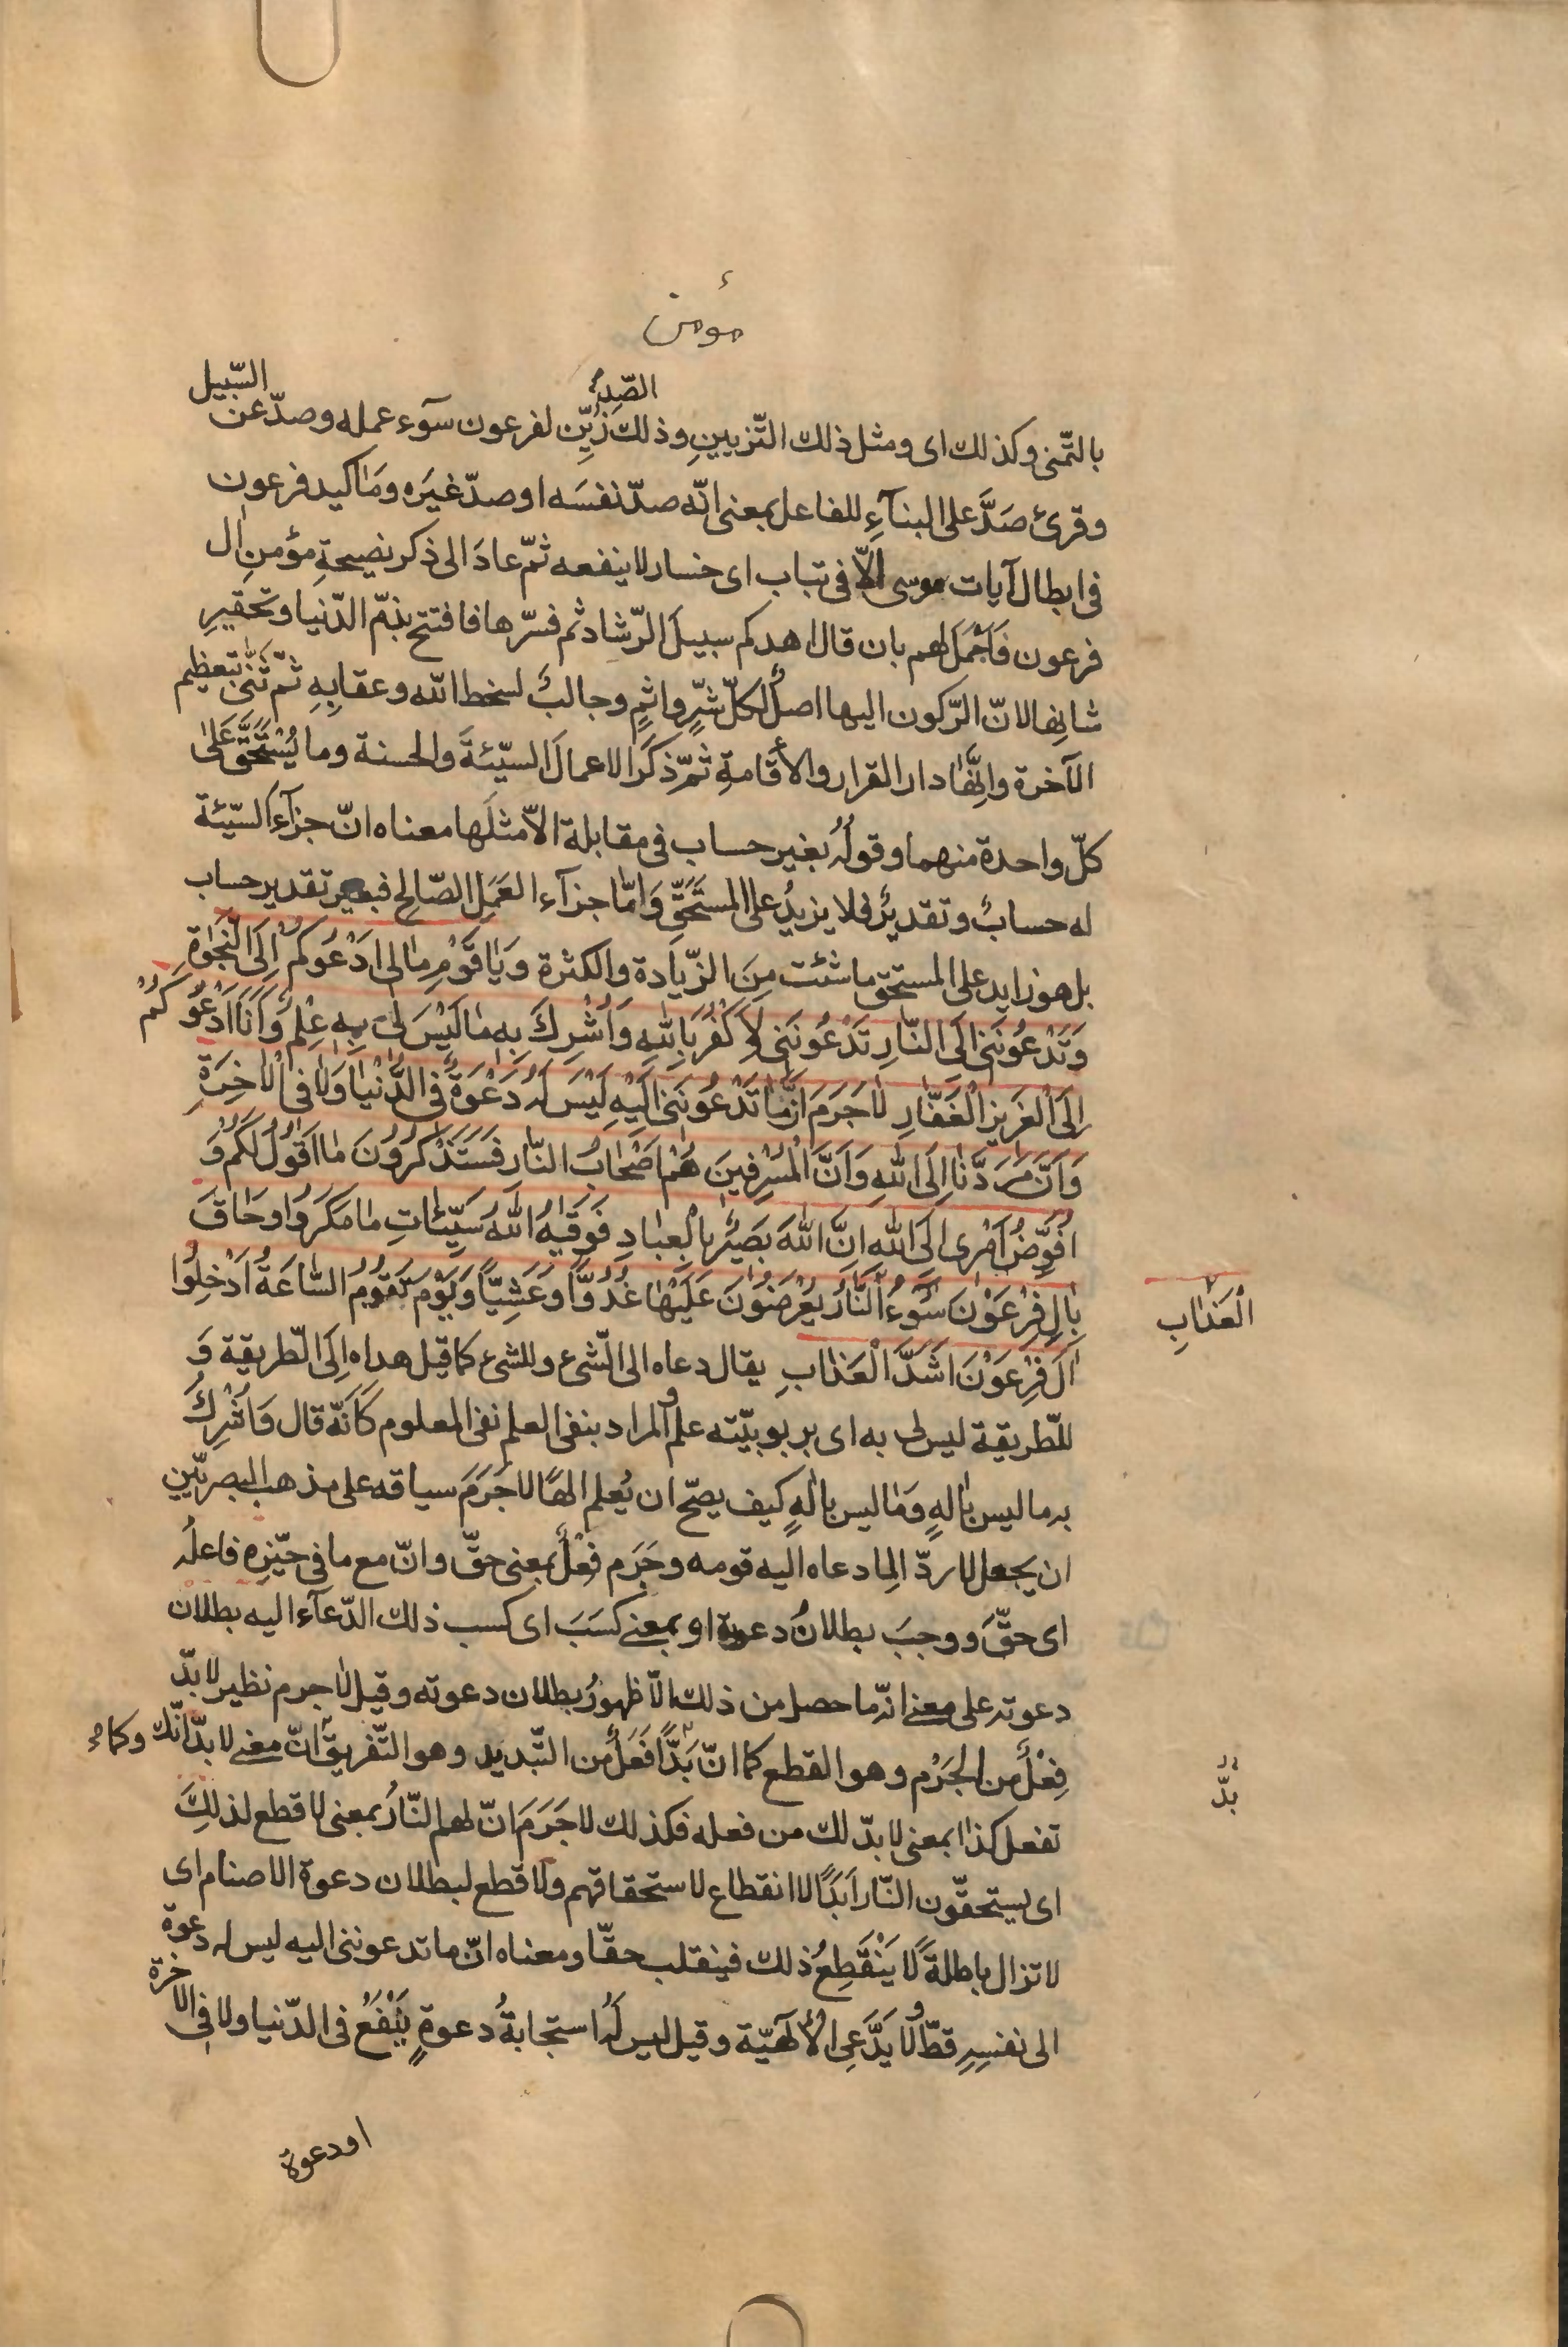 مؤمن
بالتّمنى وكذلك اى ومثل ذلك التّزيينِ وذلك الصّدِّ زُيِّن لفرعون سوٓء عمله وصدّ عن السّبيل
وقرئ صَدَّ على البنآءِ للفاعل بمعنى انّه صدّ نفسَه او صدّ غيَره ومَا كيد فرعون
فى ابطال آيات موسى الّا فى تباب اى خسار لا ينفعه ثمّ عادَ الى ذكر نصيحةِ مؤمنِ ال
فرعون فَاَجْمَلَ لهم بان قال اهدكم سبيلَ الرّشاد ثم فسّرها فافتتح بذمّ الدّنيا وتحقيرِ
شانِها لانّ الرّكون اليها اصلُ لكلّ شرٍّ واثمٍ وجالبٌ لسخط اللّه وعقابِهِ ثمّ ثَنّىٰ بتعظيم
الآخرة وانّها دار القرار والاقامةِ ثمّ ذكَرَ الاعمالَ السيّئةَ والحسنة وما يُسْتَحَقَّ عَلىٰ
كلّ واحدة منهما وقولُهُ بغير حساب فى مقابلة الّا مثلَها معناه انّ جزآء السّيّئة
له حسابٌ وتقديرٌ فلا يزيدُ على المستَحَقِّ وَامّا جزآء العَمَلِ الصّالح فبغير تقدير حساب
بل هو زايد على المستحق ما شئت مِنَ الزّيادة والكثرة وَيٰا قَوْمِ مٰا لى اَدْعُوكُمْ اِلَى النَّجٰوةِ
وَتَدْعُونَنى اِلَى النّارِ تَدْعُونَنى لِاَكْفُرَ بِاللّٰهِ وَاُشْرِكَ بِهِ مٰا لَيْسَ لى بِهِ عِلْمٌ وَاَنَا اَدْعُوكُمْ
اِلَى الْعَزيزِ الْغَفّٰارِ لٰا جَرَمَ اَنَّمٰا تَدْعُونَنى اِلَيْهِ لَيْسَ لَهُ دَعْوَةٌ فِى الدُّنْيٰا وَلٰا فِى الْاٰخِرَةِ
وَاَنَّ مَرَدَّنٰا اِلَى اللّٰهِ وَاَنَّ الْمُسْرِفينَ هُمْ اَصْحٰابُ النّارِ فَسَتَذْكُرُونَ مٰا اَقُولُ لَكُمْ وَ
اُفَوِّضُ اَمْرى اِلَى اللّٰهِ اِنَّ اللّٰهَ بَصيرٌ بِالْعِبٰادِ فَوَقٰيهُ اللّٰهُ سَيِّئٰاتِ مٰا مَكَرُوا وَحٰاقَ
بِاٰلِ فِرْعَوْنَ سُوٓءُ الْعَذٰابِ النّارُ يُعْرَضُونَ عَلَيْهٰا غُدُوًّا وَعَشِيًّا وَيَوْمَ تَقُومُ السّٰاعَةُ اَدْخِلُوا
اٰلَ فِرْعَوْنَ اَشَدَّ الْعَذٰابِ يقال دعاه الى الشّىء وللشىء كما قيل هداه اِلَى الطّريقة وَ
للطّريقة ليس لى به اى بربوبيّته علم والمراد بنفى العلم نفى المعلوم كَاَنّه قال وَاُشْرِكُ
به ما ليس بالهٍ وَمٰا ليس بالٰهٍ كيف يصحّ ان يُعلم الهًا لا جَرَمَ سياقه على مذهب البصريّين
ان يجعل لا ردّ الِما دعاه اليه قومه وجَرَم فِعْلٌ بمعنى حقّ وانّ مع ما فى حيّزِه فاعلُه
اى حقَّ ووجبَ بطلانُ دعوته او بمعنى كسَبَ اى كسب ذلك الدّعآء اليه بطلان
دعوته على معنى انّه ما حصل من ذلك الّا ظهورُ بطلان دعوته وقيل لٰا جرم نظير لا بدّ
فِعْلٌ من الجَرْم وهو القطع كما انّ بُدًّا فَعَلٌ من التّبديد وهو التّفريق وكما انّ معنى لا بدّ انّك
تفعل كذا بمعنى لا بدّ لك من فعله فكذلك لا جَرَمَ انّ لهم النّارُ بمعنى لا قطع لذلِكَ
اى يستحقّون النّار اَبَدًا لا انقطاع لاستحقاقهم ولا قطع لبطلان دعوة الاصنام اى
لا تزال باطلةً لا يَنْقَطِعُ ذلك فينقلب حقّا ومعناه انّ ما تدعوننى اليه ليس له دعوة
الى نفسِهِ قطّ ولا يَدَّعِى الُالٓهيّة وقيل ليس لَهُ استجابةُ دعوةٍ يَنْفَعُ فى الدّنيا ولا فى الآخرة
الْعَذٰابِ
بدّ
او دعوة